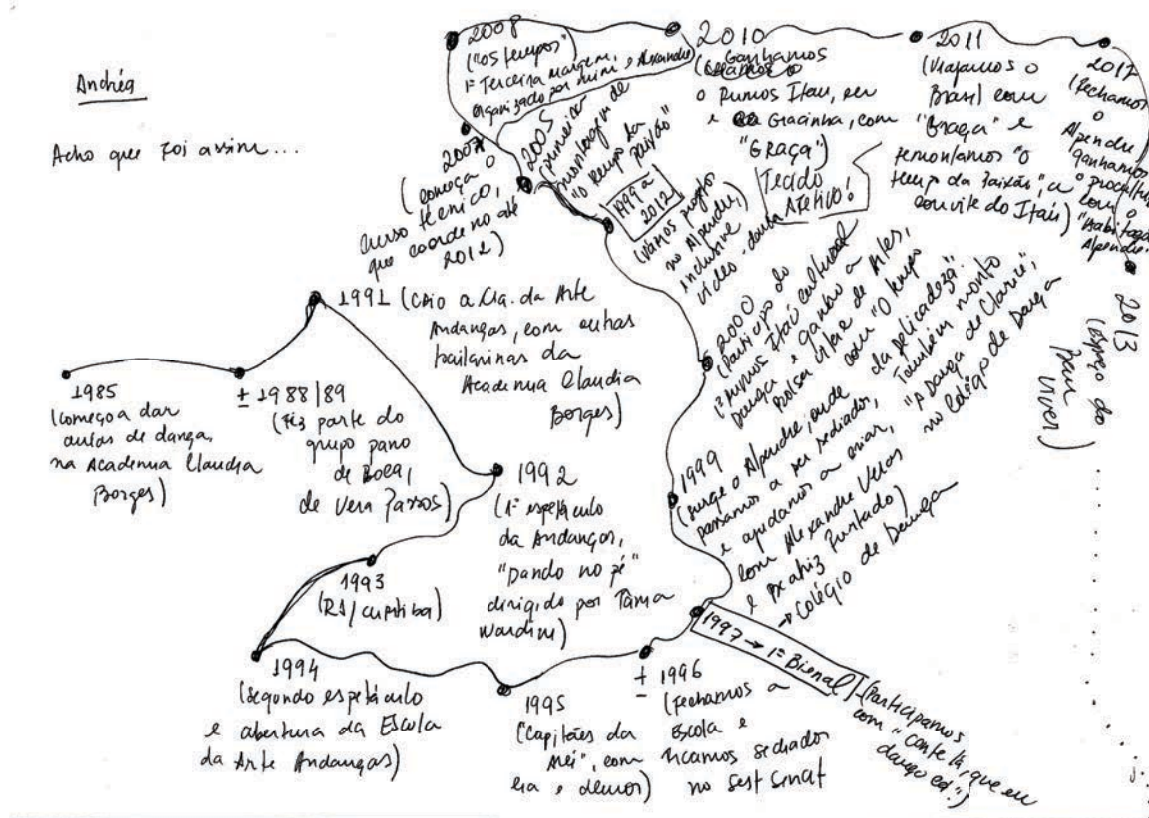 Andréa
Acho que foi assim...
1985
(começo a dar
aulas de dança
na Academia Claudia
Borges)
± 1988/89
(Fiz parte do
grupo pano
de Boca,
de Vera Passos)
1991 (crio a Cia. da Arte
Andanças, com outras
bailarinas da
Academia Claudia
Borges)
1992
(1º espetáculo
da Andanças,
"Dando no pé"
dirigido por Tânia
Nardini)
1993
(RJ/Curitiba)
1994
(segundo espetáculo
e abertura da Escola
da Arte Andanças)
1995
("Capitães da
, com
e )
± 1996
(fechamos a
Escola e
ficamos sediados
no Sest Senat
1997 → 1ª Bienal
(Participamos
com "conte lá, que eu
danço cá")
1999
(surge o Alpendre, onde
passamos a ser sediados,
e ajudamos a criar,
com Alexandre Veras
e Beatriz Furtado)
→ Colégio de Dança
2000
(Participo do
1º Rumos Itaú cultural
Dança e ganho a
Bolsa Vitae de Artes,
com "O tempo
da delicadeza".
Também monto
"A Dança de Clarice",
no Colégio de Dança
1999 a
2012
(vários projetos
no Alpendre,
inclusive
vídeo-dança
2005
(primeira
montagem de
"O tempo da
paixão"
2007
(começa o
curso técnico,
que coordeno até
2012)
2008
("os tempos")
1ª Terceira margem,
organizado por mim e Alexandre)
2010
Ganhamos
(
o Rumos Itaú, eu
e Gracinha, com
"GRAÇA")
Tecido
Afetivo!
2011
(Viajamos o
Brasil com
"Graça" e
remontamos "O
tempo da Paixão", a
convite do Itaú)
2012
(Fechamos
o
Alpendre,
ganhamos
o
com o

Alpendre"
2013
(Espaço do
Bem
Viver)